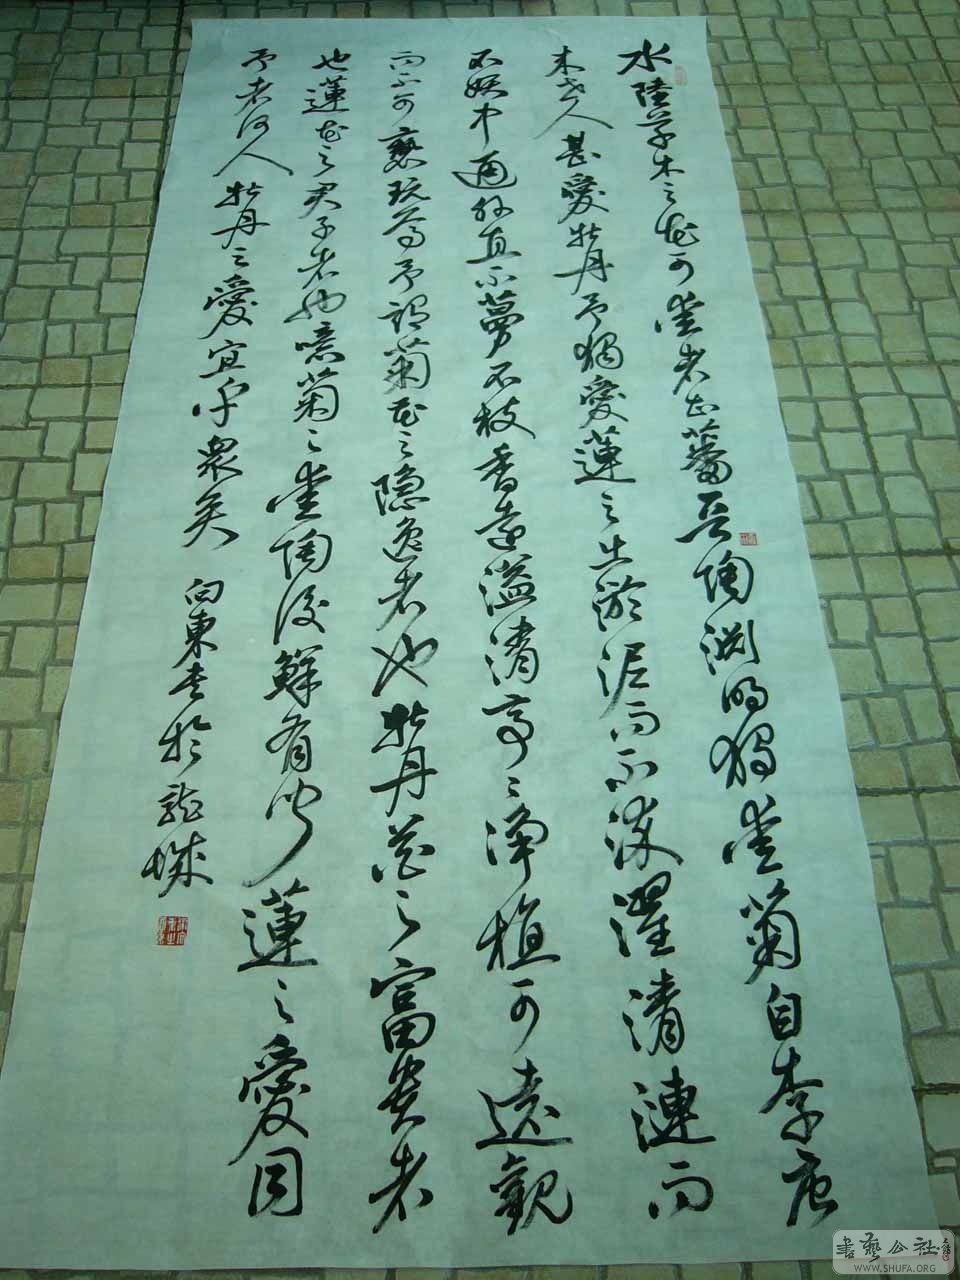 水陸草木之花可爱者甚蕃晋陶渊明独爱菊自李唐
来世人甚愛牡丹予獨愛蓮之出淤泥而不染濯清漣而
不妖中通外直不蔓不枝香遠溢清亭々淨植可遠觀
而不可褻玩焉予謂菊花之隐逸者也牡丹花之富贵者
也蓮花之君子者也噫菊之爱陶後鮮有闻蓮之愛同
予者何人牡丹之愛宜乎衆矣 向東书於龍城
書藝公社
WWW.SHUFA.ORG